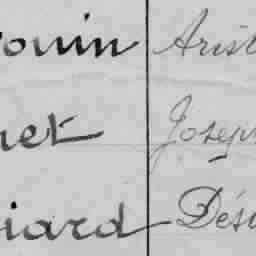 ouin Arist
net Joseph
iard Dési